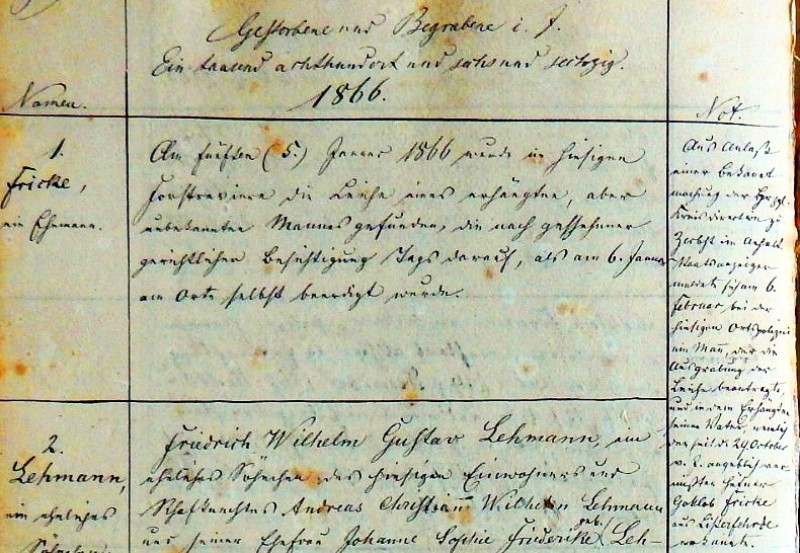 Gestorbene und Begrabene i. J.
Ein tausend achthundert und sechs und sechzig.
1866.
Namen.
Not.
1.
Fricke,
ein Ehemann.
Am fünften (5.) Januar 1866 wurde im hiesigen
Forstreviere die Leiche eines erhängten, aber
unbekannten Mannes gefunden, die nach geschehener
gerichtlicher Besichtigung Tags darauf, als am 6. Januar
am Orte selbst beerdigt wurde.
Aus Anlaß
einer Bekannt
machung der
Kreisdirection zu
Zerbst im Anhalt
Staatsanzeiger
meldete sich am 6.
Februar bei der
hiesigen Ortspolizei
ein Mann, der die
Ausgrabung der
Leiche beantragte
und in dem Erhängten
seinen Vater,
den seit d. 29 October
v. J. angeblich ver
mißten
Gottlob Fricke
aus
erkannte.
2.
Lehmann,
ein eheliches
Söhnchen
Friedrich Wilhelm Gustav Lehmann, ein
eheliches Söhnchen des hiesigen Einwohners und
Schafknechtes Andreas Christian Wilhelm Lehmann
und seiner Ehefrau Johanne Sophie Friederike geb. Leh-